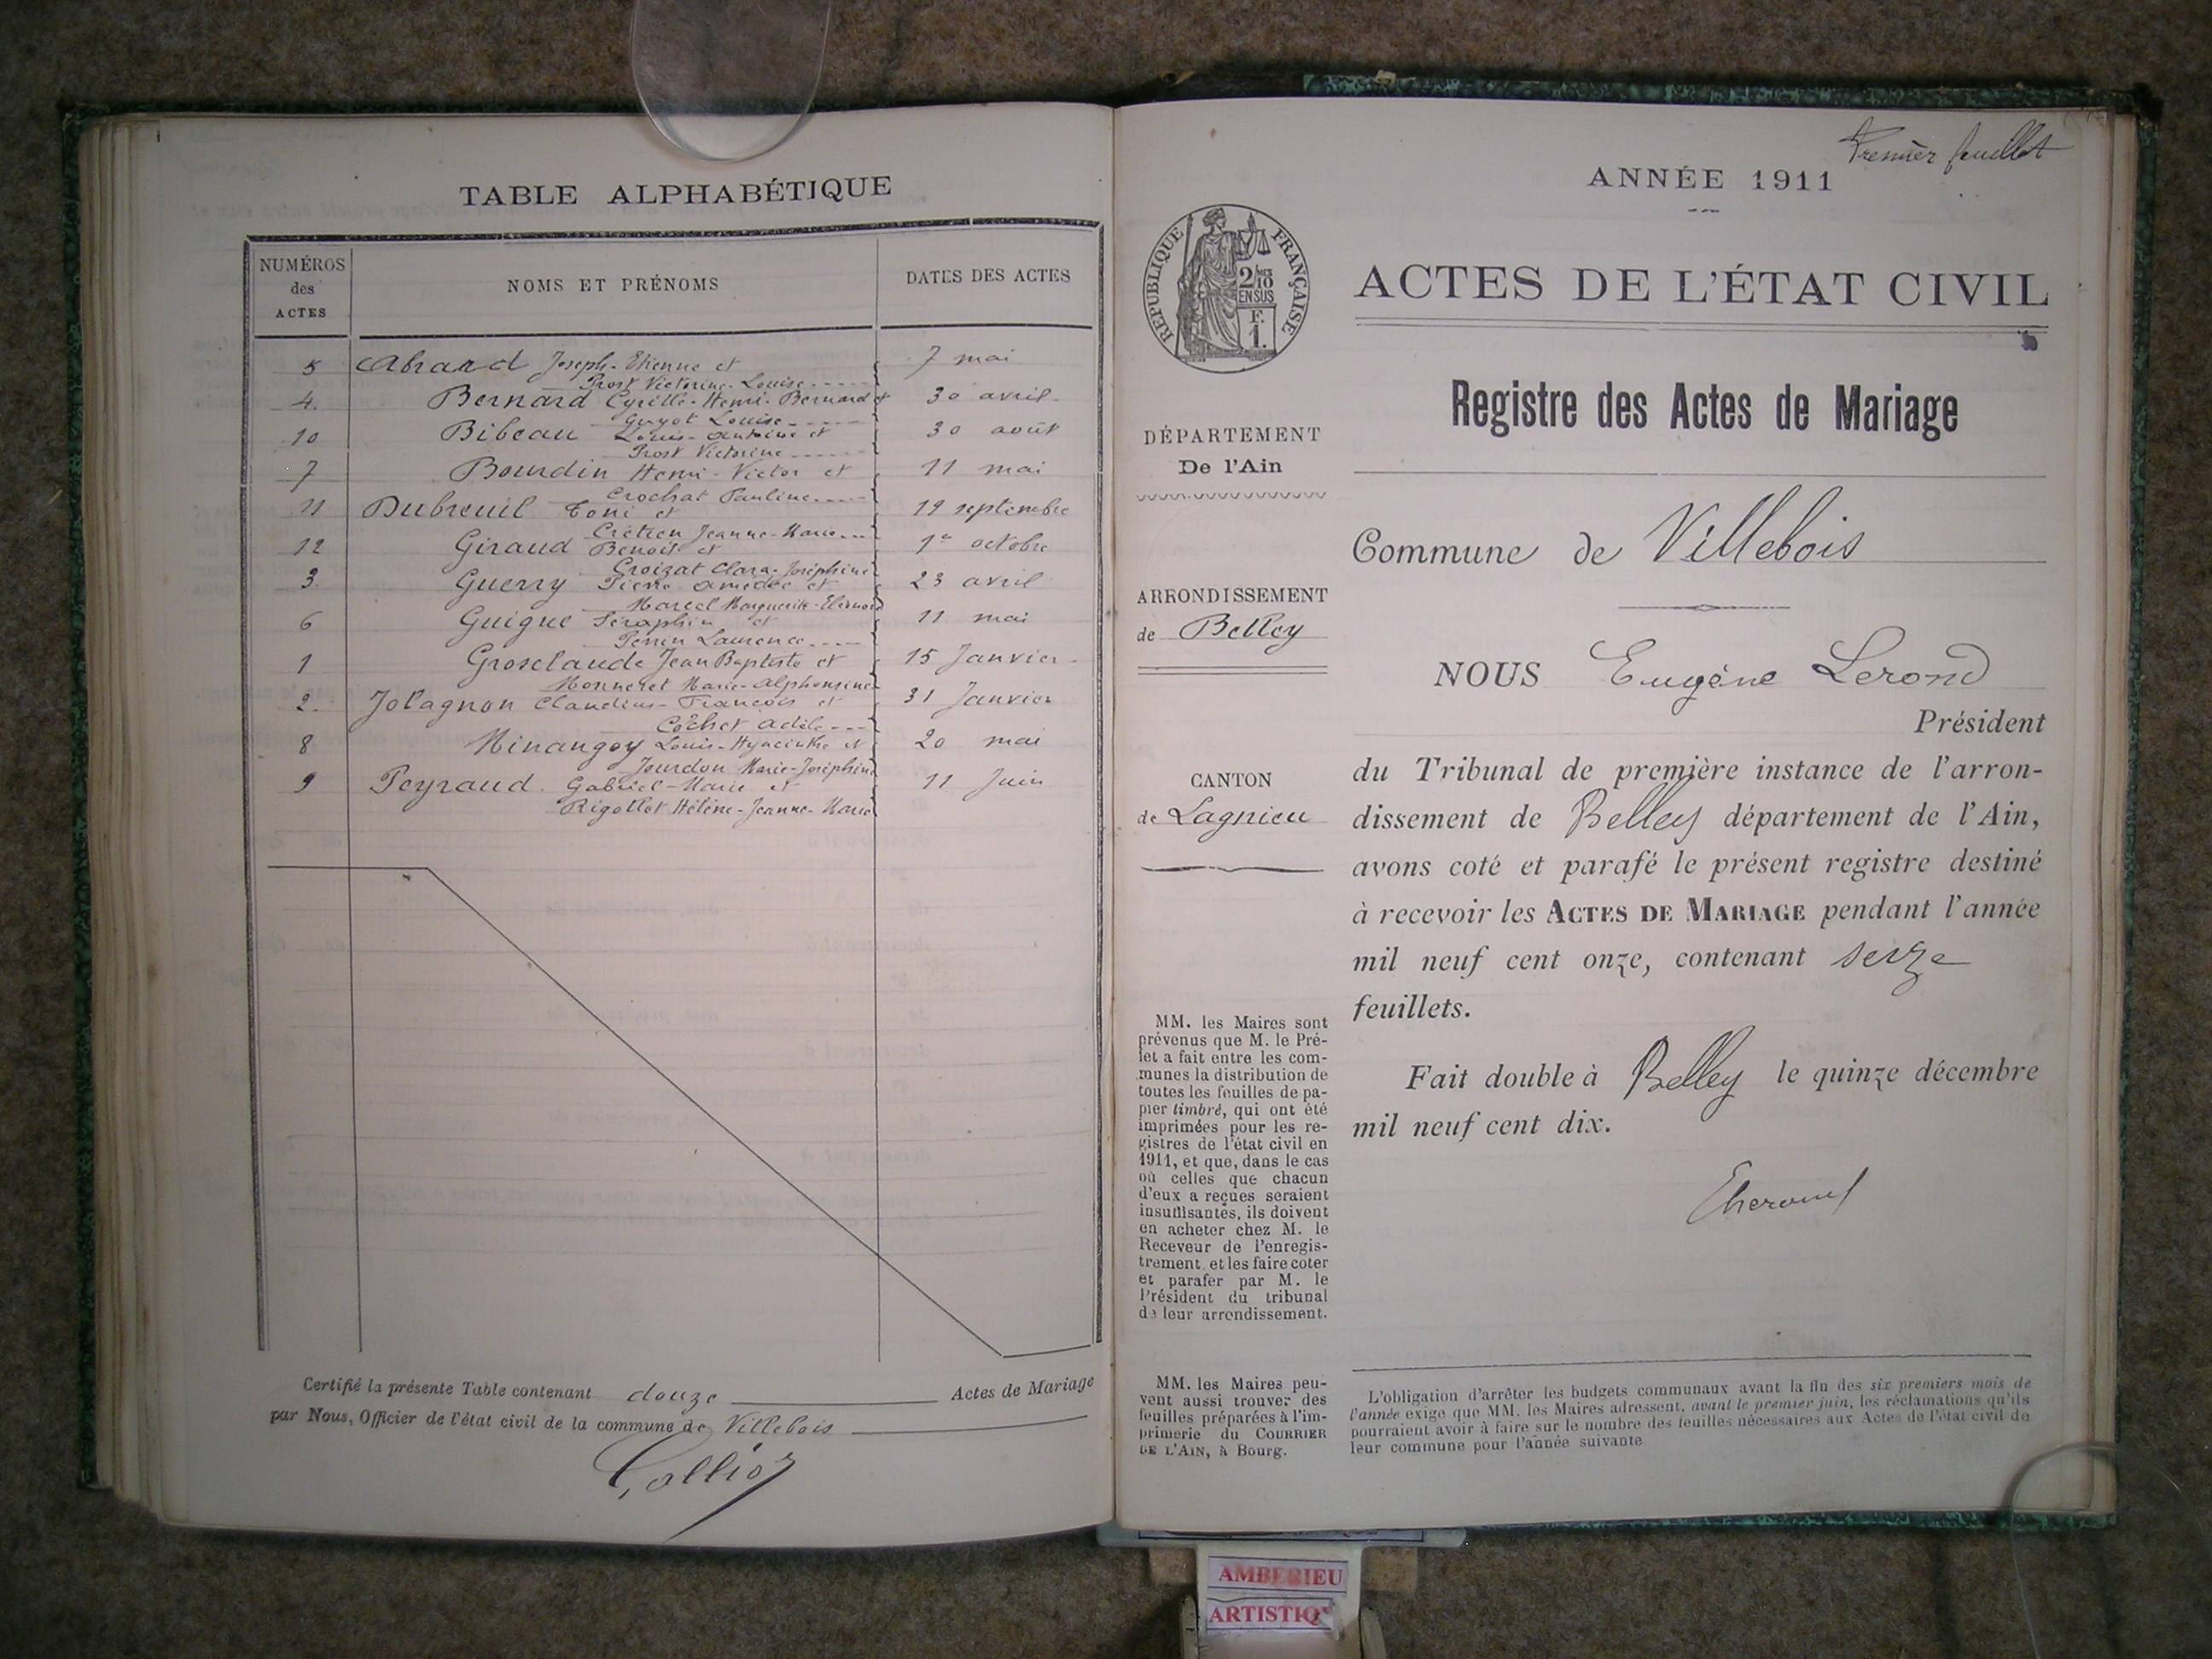 TABLE ALPHABÉTIQUE
NUMÉROS des ACTES
NOMS ET PRÉNOMS
DATES DES ACTES
5 Abrard Joseph-Etienne et 7 mai
Prost Victorine-Louise
4. Bernard Cyrille-Henri-Bernard et 30 avril
Guyot Louise
10 Bibeau Louis-Antoine et 30 août
Prost Victorine
7 Bourdin Henri-Victor et 11 mai
Crochat Pauline
11 Dubreuil Toni et 19 septembre
Crétien Jeanne-Marie
12 Giraud Benoit et 1er octobre
Croizat Clara-Joséphine
3. Guerry Pierre-Amédée et 23 avril
Marcel Marguerite
6 Guigue Séraphin et 11 mai
Perrin Laurence
1 Groselaude Jean Baptiste et 15 Janvier
Monneret Marie-Alphonsine
2. Jolagnon Claudius-François et 31 Janvier
Cochet Adèle
8 Minangoy Louis-Hyacinthe et 20 mai
Jourdon Marie-Joséphine
9 Peyraud Gabriel-Marie et 11 Juin
Rigollet Hélène-Jeanne-Marie
Certifié la présente Table contenant douze Actes de Mariage
par Nous, Officier de l'état civil de la commune de Villebois
Premier feuillet
ANNÉE 1911
RÉPUBLIQUE FRANÇAISE
2/10
EN SUS
F.
1.
ACTES DE L'ÉTAT CIVIL
Registre des Actes de Mariage
DÉPARTEMENT
De l'Ain
ARRONDISSEMENT
de Belley
CANTON
de Lagnieu
Commune de Villebois
NOUS Eugène Lerond
Président
du Tribunal de première instance de l'arron-
dissement de Belley département de l'Ain,
avons coté et parafé le présent registre destiné
à recevoir les ACTES DE MARIAGE pendant l'année
mil neuf cent onze, contenant seize
feuillets.
Fait double à Belley le quinze décembre
mil neuf cent dix.
MM. les Maires sont
prévenus que M. le Pré-
fet a fait entre les com-
munes la distribution de
toutes les feuilles de pa-
pier timbré, qui ont été
imprimées pour les re-
gistres de l'état civil en
1911, et que, dans le cas
où celles que chacun
d'eux a reçues seraient
insuffisantes, ils doivent
en acheter chez M. le
Receveur de l'enregis-
trement, et les faire coter
et parafer par M. le
Président du tribunal
de leur arrondissement.
MM. les Maires peu-
vent aussi trouver des
feuilles préparées à l'im-
primerie du COURRIER
DE L'AIN, à Bourg.
L'obligation d'arrêter les budgets communaux avant la fin des six premiers mois de
l'année exige que MM. les Maires adressent, avant le premier juin, les réclamations qu'ils
pourraient avoir à faire sur le nombre des feuilles nécessaires aux Actes de l'état civil de
leur commune pour l'année suivante
AMBERIEU
ARTISTIQ